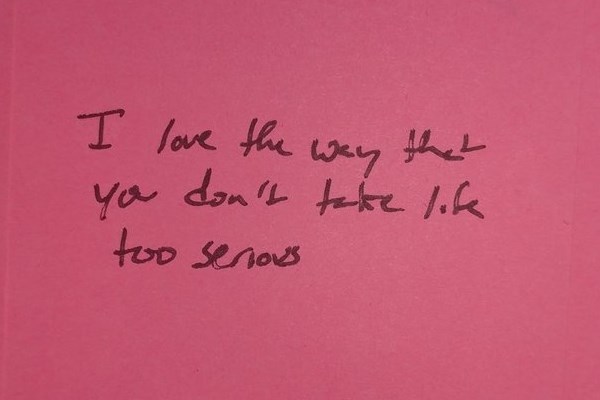 I love the way that
you don't take life
too serious